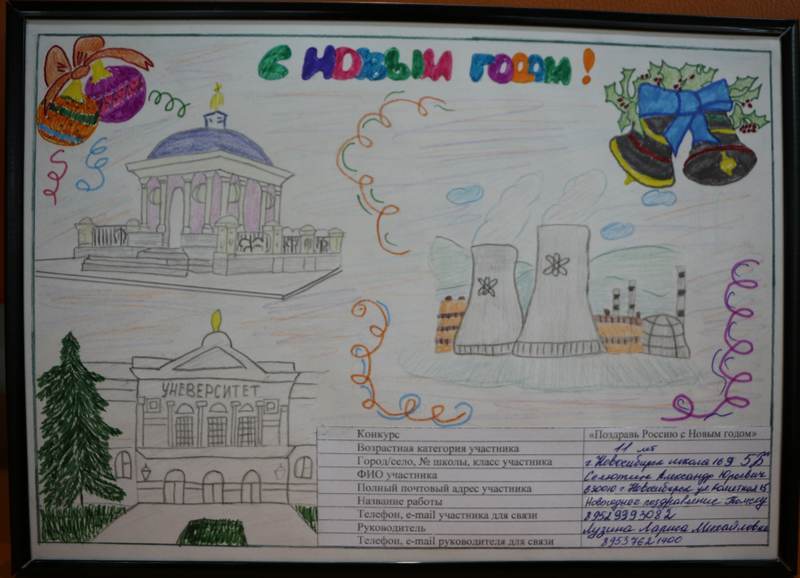 С НОВЫМ ГОДОМ!
УНЕВЕРСИТЕТ
Конкурс «Поздравь Россию с Новым годом»
Возрастная категория участника 11 лет
Город/село, № школы, класс участника г. Новосибирск школа 169 5Б
ФИО участника Александр Юрьевич
Полный почтовый адрес участника 630010 г. Новосибирск ул
Название работы Новогоднее поздравление Томску
Телефон, e-mail участника для связи 89529393082
Руководитель Лузина Лариса Михайловна
Телефон, e-mail руководителя для связи 89537621400